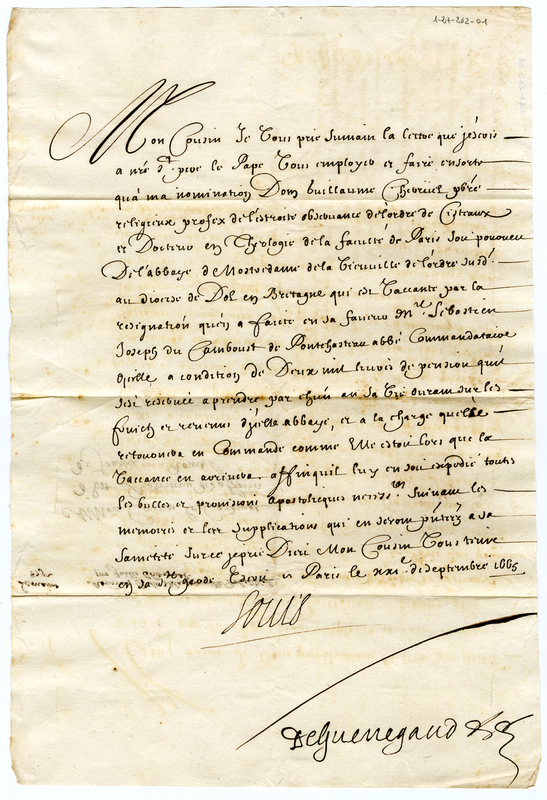 1-27-262-01
Mon Cousin Je Vous prie suivant la lettre que j'escris
a nre St pere le Pape Vous employer et faire ensorte
qu'a ma nomination Dom Guillaume pbre
religieux profex de l'estroite observance de l'ordre de Cisteaux
et Docteur en Theologie de la faculté de Paris soit pourveu
De l'abbaye de Nostredame de la Vieuville de l'ordre susd.
au diocese de Dol en Bretagne qui est Vaccante par la
resignation qu'en a faicte en sa faveur Mre Sebastien
Joseph du Camboust de Pontchasteau abbé Commandataire
d'icelle a condition de Deux mil livres de pension qu'il
s'est reservée a prendre par chün an sa Vie durant sur les
fruicts et revenus d'icelle abbaye, et a la charge qu'elle
retournera en Commande comme Elle estoit lors que la
Vaccance en arrivera, affinquil luy en soit expedié toutes
les bulles et provisions apostoliques necess.res suivant les
memoires et supplications qui en seront pntez a sa
Sainteté Surce je prie Dieu Mon Cousin Vous tenir
en sa ste garde Escrit a Paris le xxie de septembre 1665
Louis
DeGuenegaud